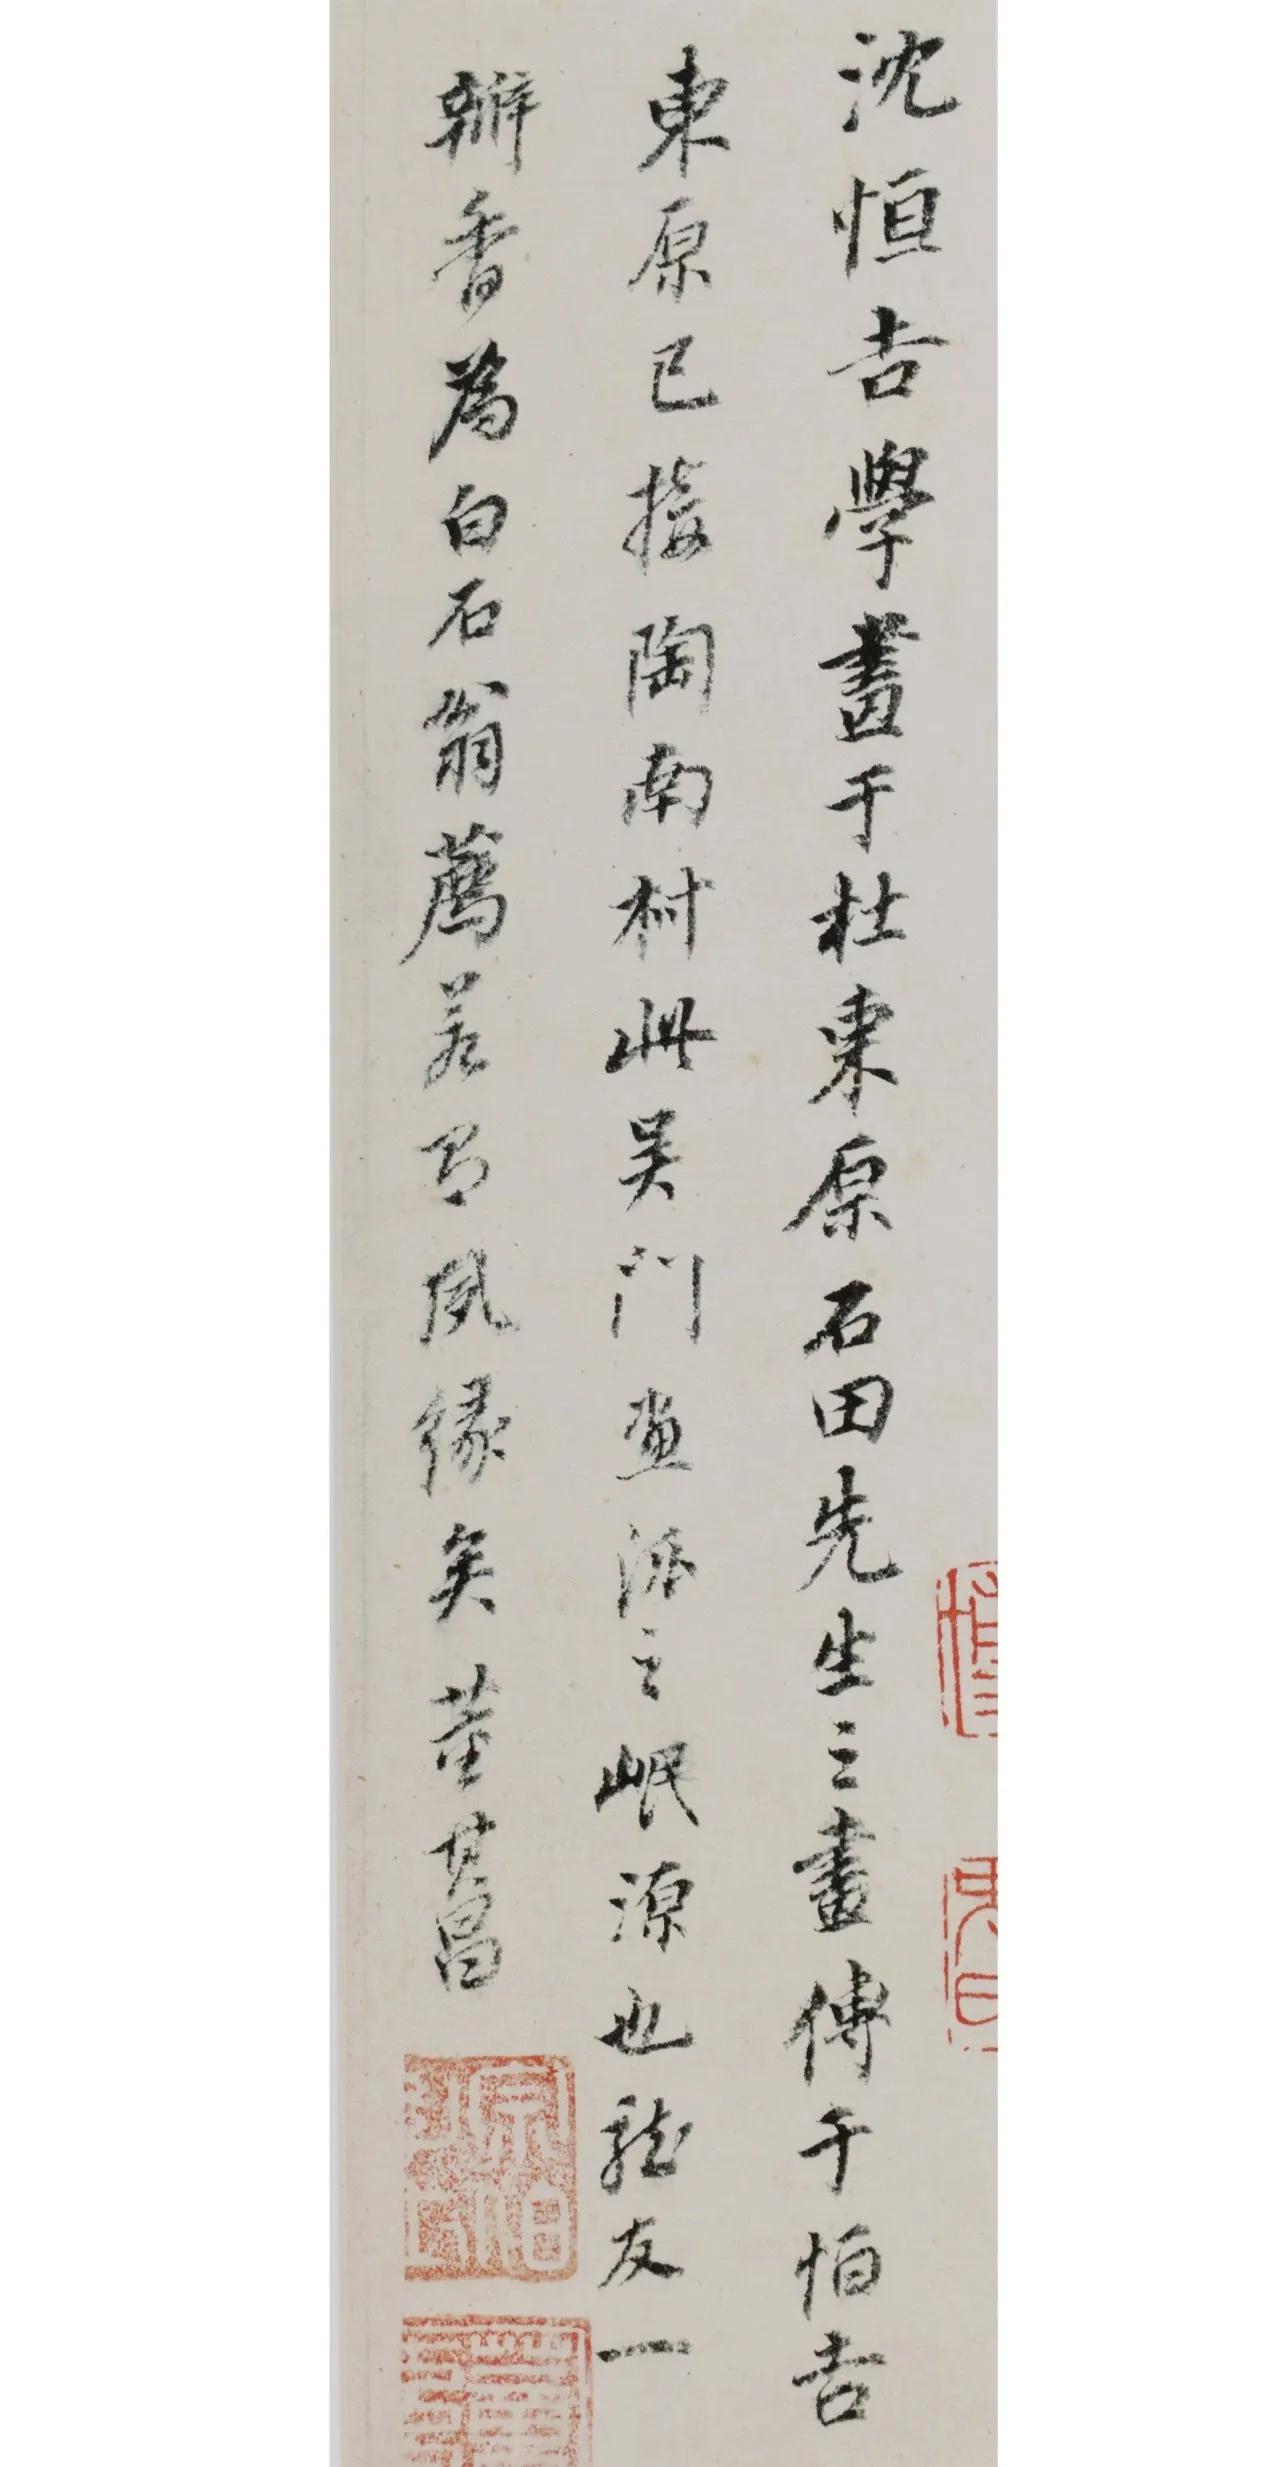 沈恒吉學畫于杜東原石田先生之畫傳于恒吉
東原已接陶南村此吳門畫派之岷源也龍友一
瓣香為白石翁薦若有夙緣矣 董其昌